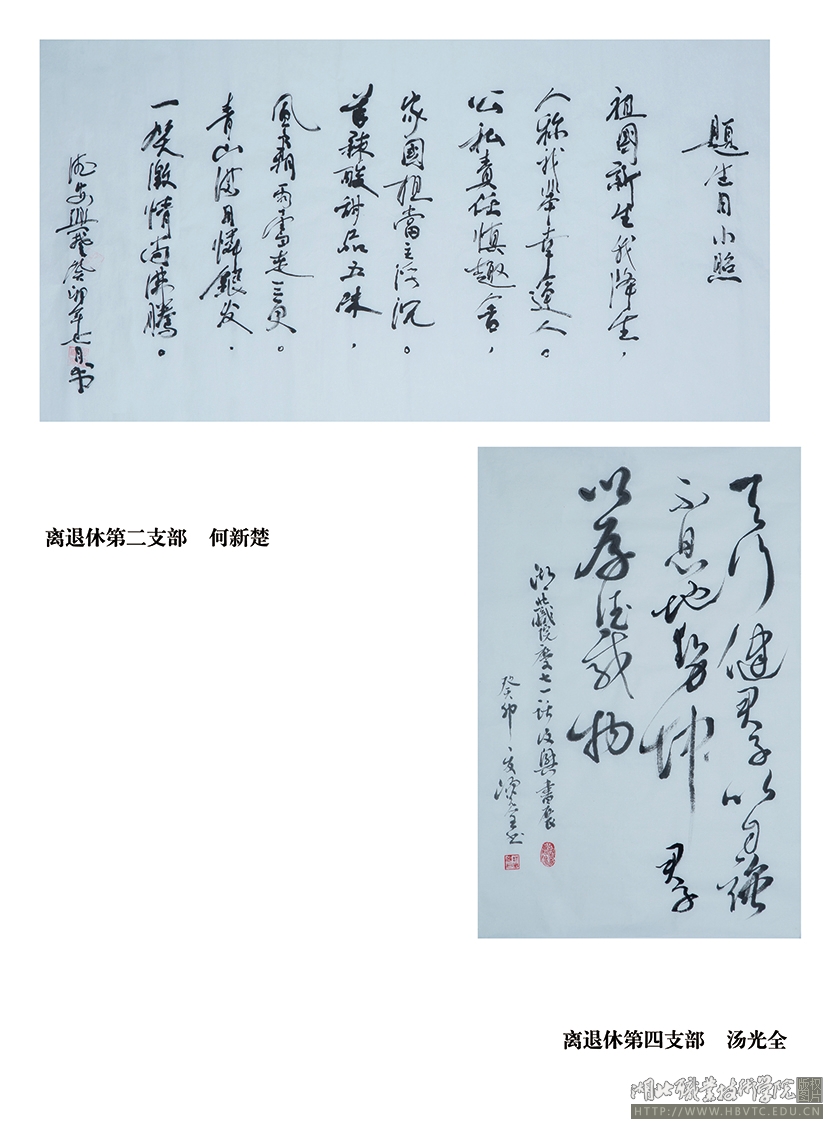 题生日小照
祖国新生我降生，
人称我辈幸运人。
公私责任慎趣舍，
家国担当主浮沉。
苦辣酸甜品五味，
风霜雨雪走三更。
青山满目怜银发．
一腔激情尚沸腾。
癸卯年七月书
离退休第二支部 何新楚
天行健君子以自强
不息地势坤 君子
以厚德载物
湖北职院庆七一 书展
癸卯
离退休第四支部 汤光全
湖北职业技术学院 版权图片
HTTP://WWW.HBVTC.EDU.CN